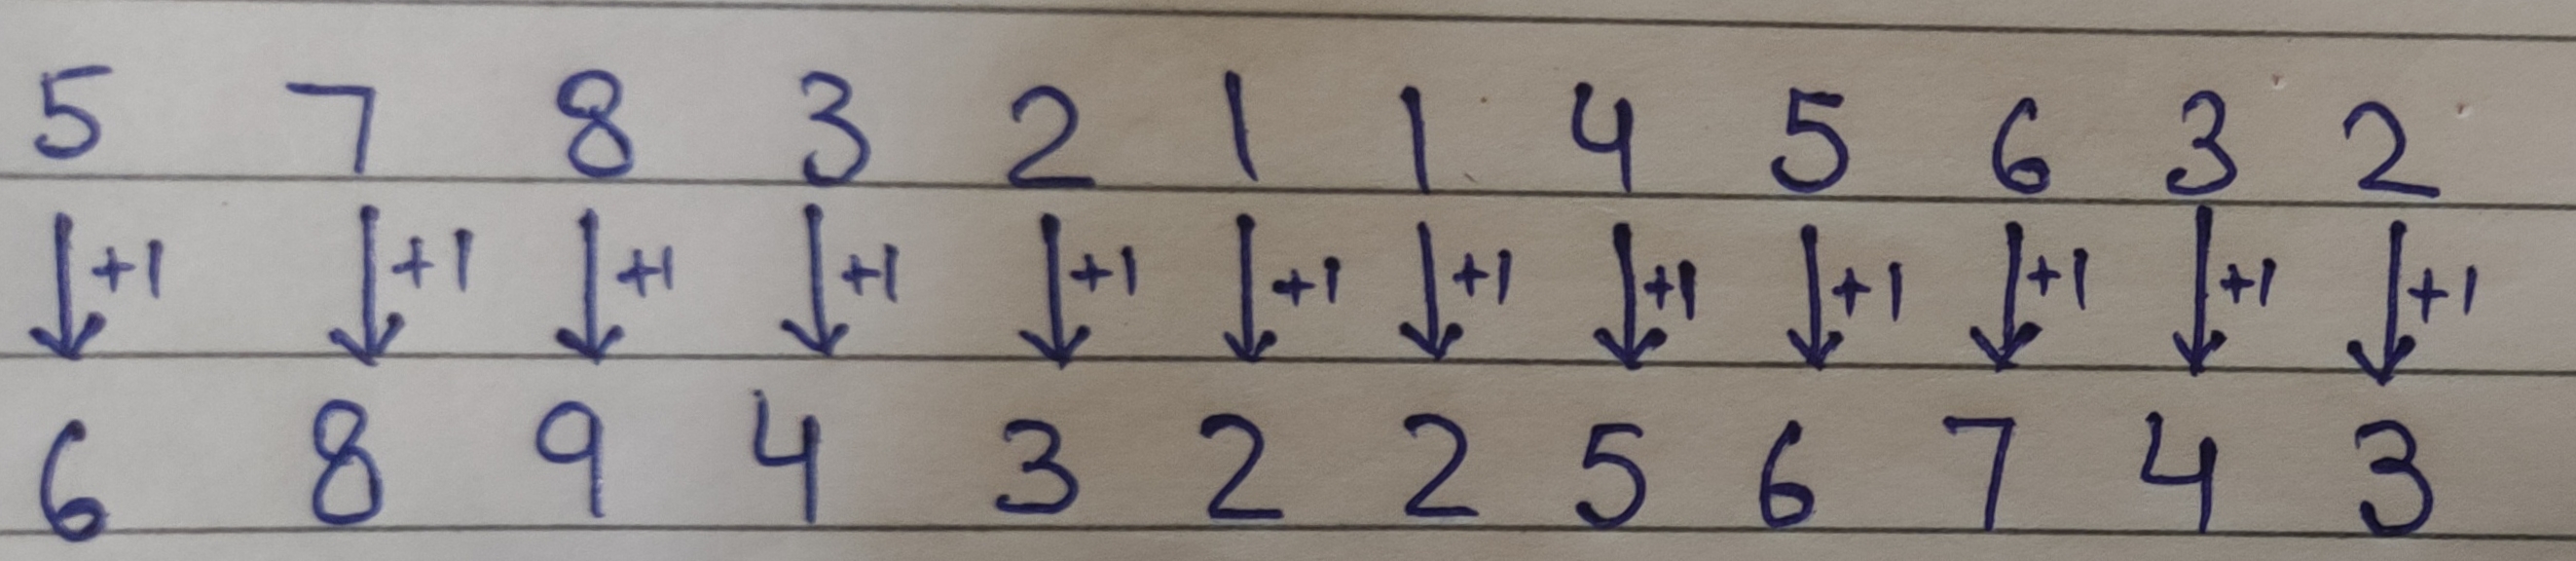 5 7 8 3 2 1 1 4 5 6 3 2
↓+1 ↓+1 ↓+1 ↓+1 ↓+1 ↓+1 ↓+1 ↓+1 ↓+1 ↓+1 ↓+1 ↓+1
6 8 9 4 3 2 2 5 6 7 4 3